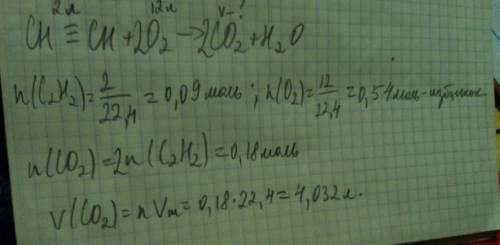 2 л 12 л V-?
CH ≡ CH + 2O₂ → 2CO₂ + H₂O
n(C₂H₂) = 2/22,4 = 0,09 моль; n(O₂) = 12/22,4 = 0,54 моль - избыток
n(CO₂) = 2n(C₂H₂) = 0,18 моль
V(CO₂) = nVm = 0,18 · 22,4 = 4,032 л.